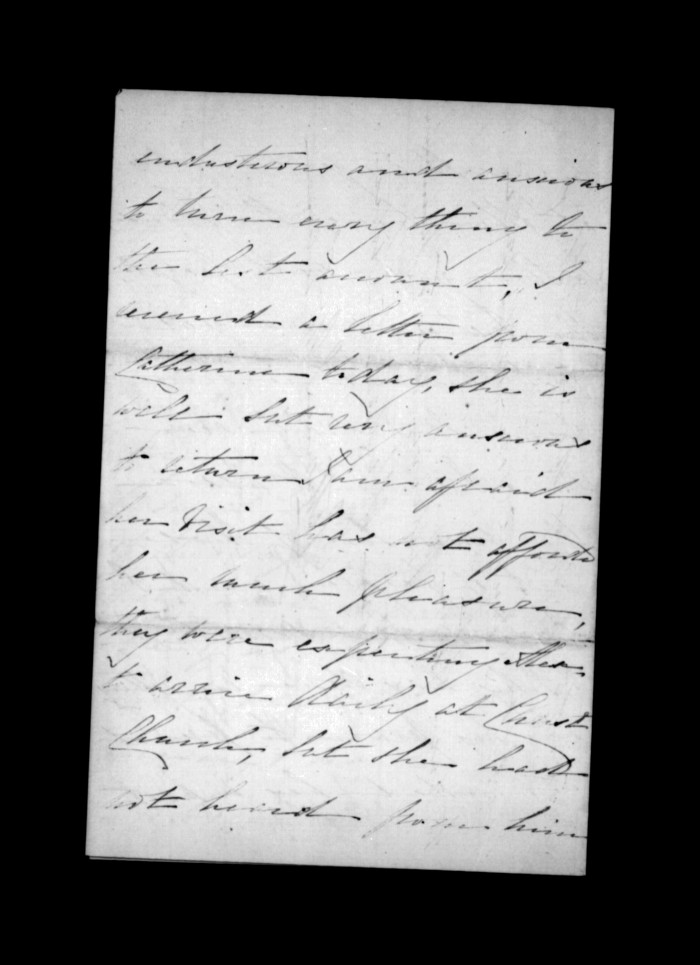 industrious and anxious
to turn every thing to
the best amount, I
received a letter from
Catherine today, she is
well but very anxious
to return I am afraid
her visit has not afforded
her much pleasure,
they were expecting Alex
to arrive daily at Christ
Church, but she had
not heard from him